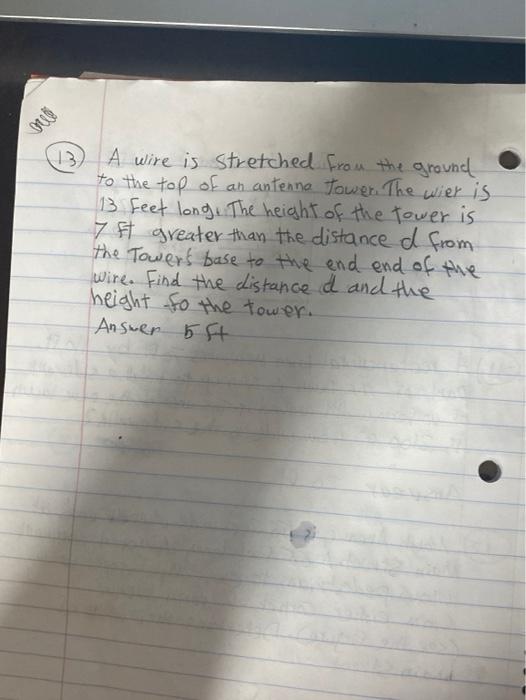 13 A wire is stretched from the ground
to the top of an antenna tower. The wier is
13 feet long. The height of the tower is
7 ft greater than the distance d from
the Tower's base to the end end of the
wire. Find the distance d and the
height fo the tower.
Answer 5 ft